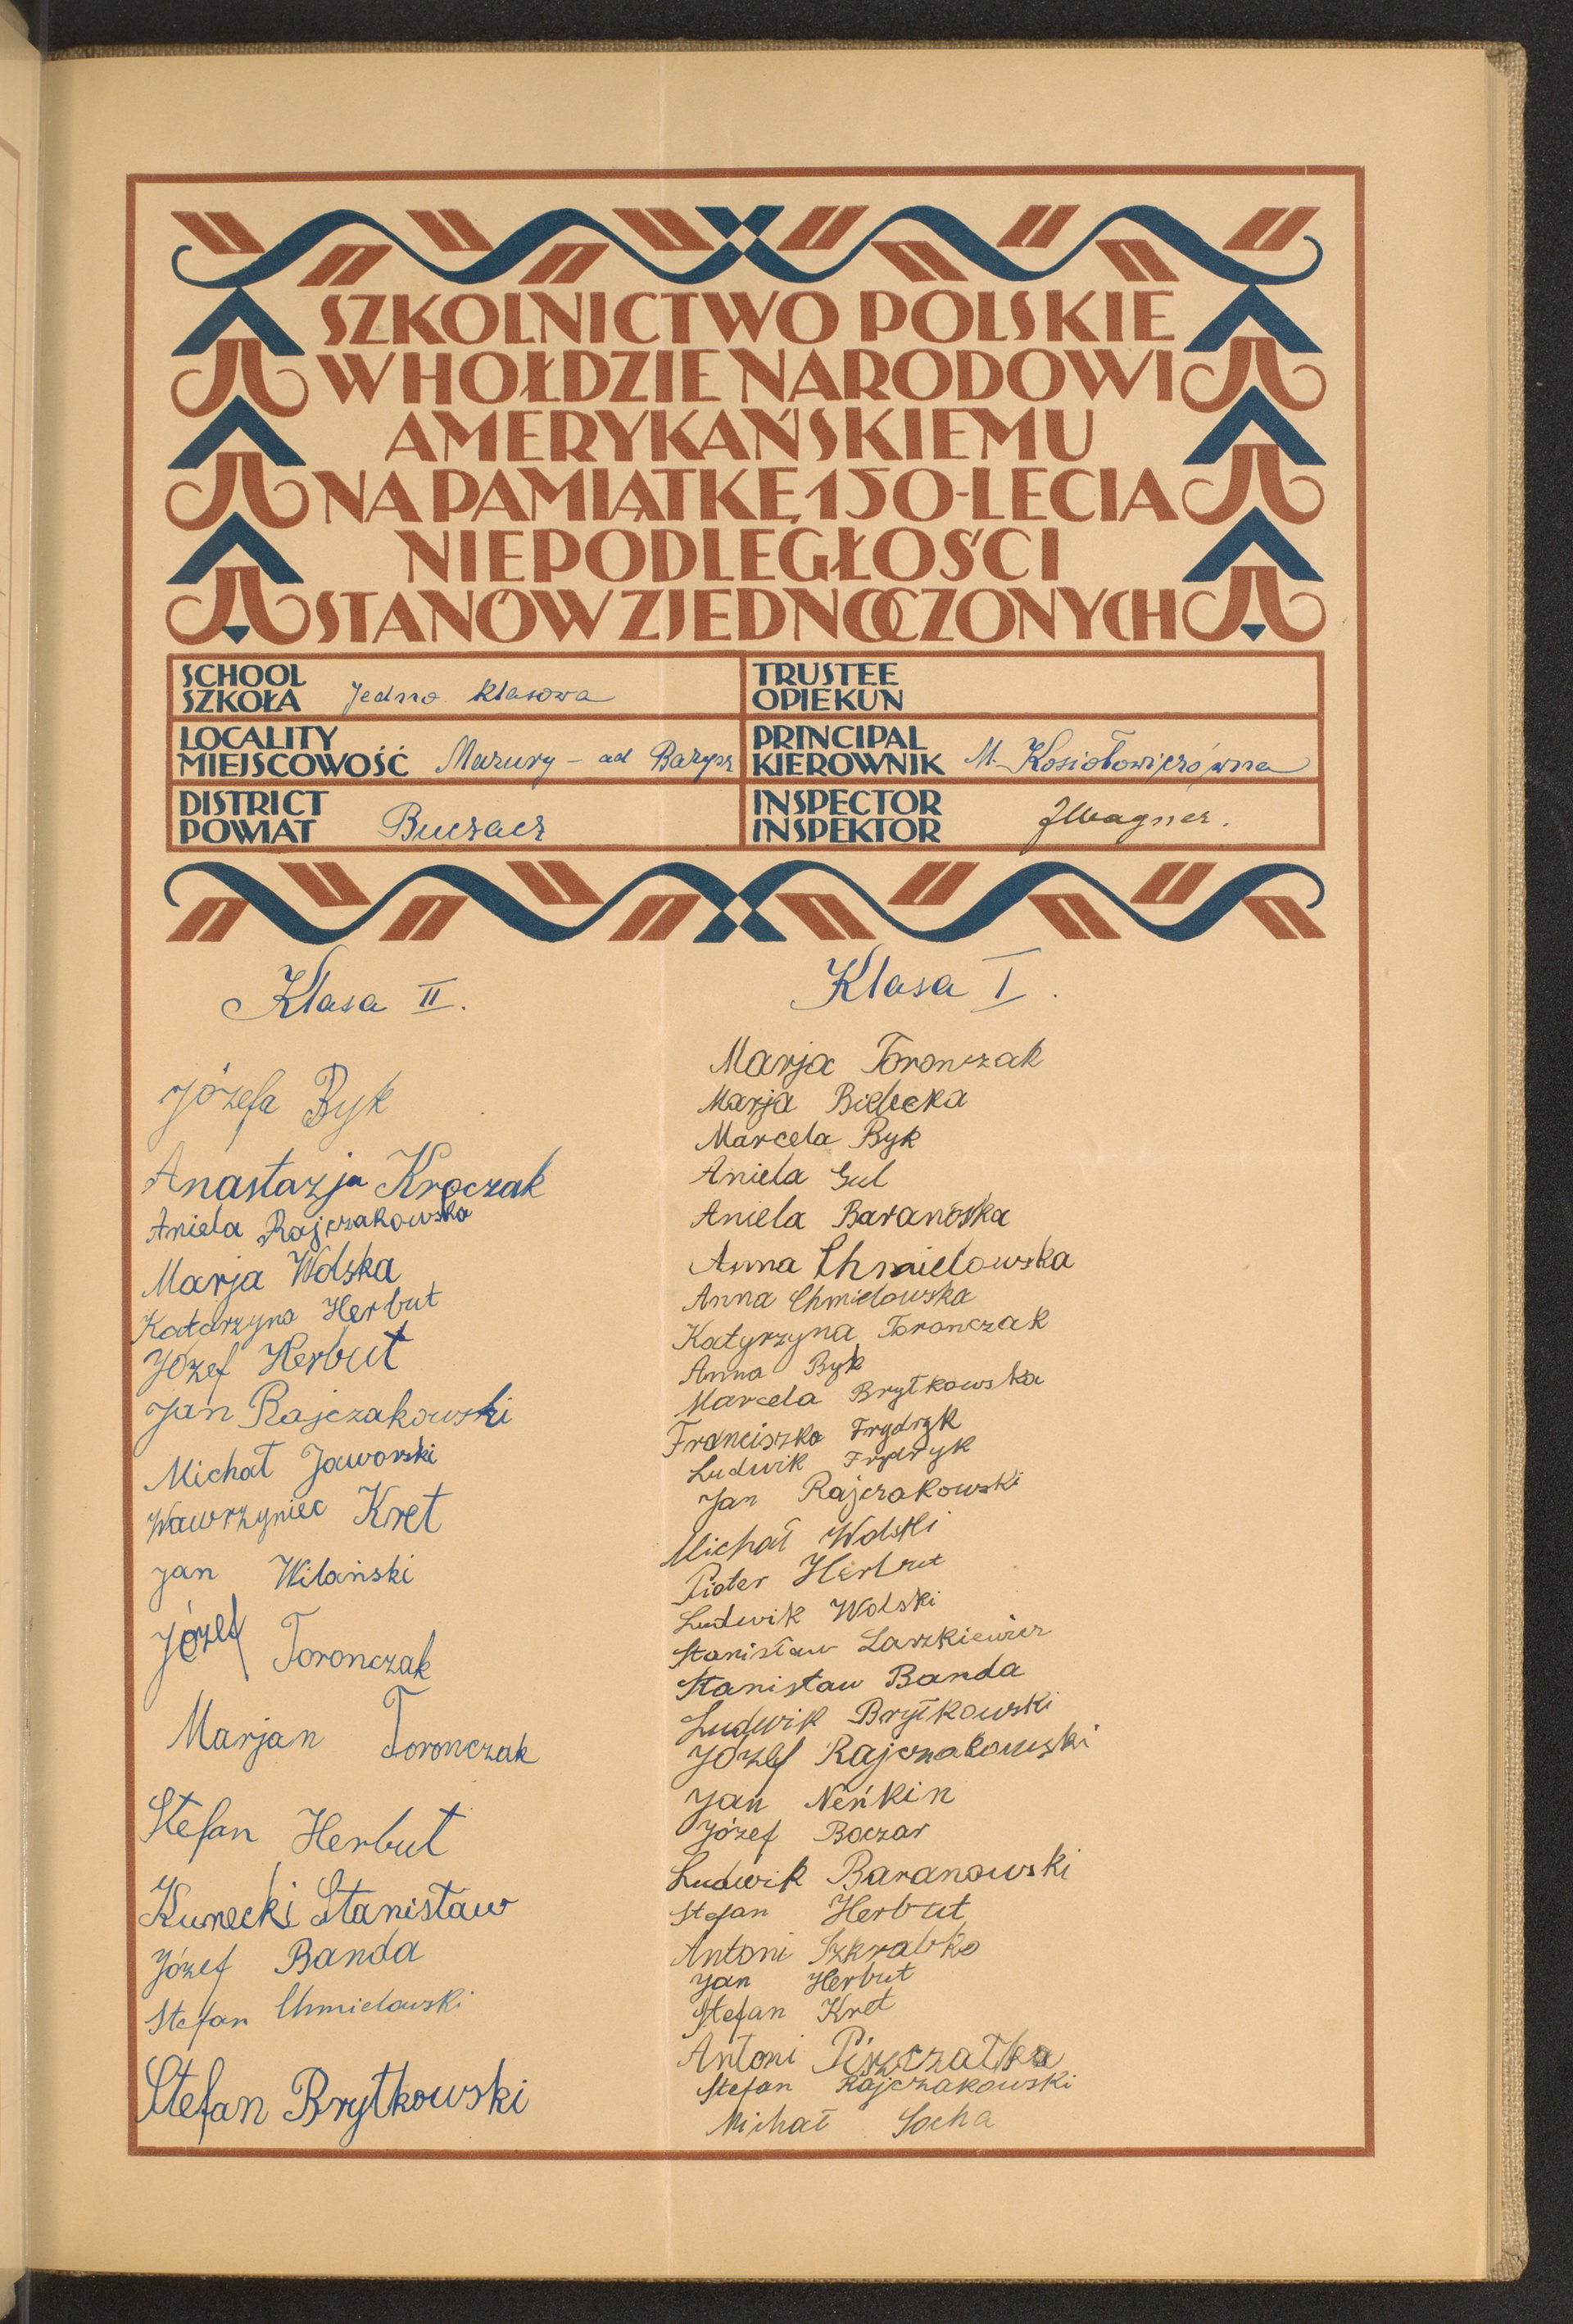 SZKOLNICTWO POLSKIE
W HOŁDZIE NARODOWI
AMERYKAŃSKIEMU
NA PAMIĄTKĘ 150-LECIA
NIEPODLEGŁOŚCI
STANÓW ZJEDNOCZONYCH
SCHOOL
SZKOŁA Jedno klasowa
TRUSTEE
OPIEKUN
LOCALITY
MIEJSCOWOŚĆ Mazury - ad Barysz
PRINCIPAL
KIEROWNIK M. Kosiołowiczówna
DISTRICT
POWIAT Buczacz
INSPECTOR
INSPEKTOR JWagner.
Klasa II.
Józefa Byk
Anastazja Kroczak
Aniela Rajczakowska
Marja Wolska
Katarzyna Herbut
Józef Herbut
Jan Rajczakowski
Michał Jaworski
Wawrzyniec Kret
Jan Wilański
Józef Toronczak
Marjan Toronczak
Stefan Herbut
Kunecki Stanisław
Józef Banda
Stefan Chmielowski
Stefan Brytkowski
Klasa I.
Marja Toronczak
Marja Bielecka
Marcela Byk
Aniela Gul
Aniela Baranoska
Anna Chmielowska
Anna Chmielowska
Katyrzyna Toronczak
Anna Byk
Marcela Brytkowska
Franciszka Frydryk
Ludwik Frydryk
Jan Rajczakowski
Michał Wolski
Pioter Herbut
Ludwik Wolski
Stanisław Laszkiewicz
Stanisław Banda
Ludwik Brytkowski
Józef Rajczakowski
Jan Neńkin
Józef Boczar
Ludwik Baranowski
Stefan Herbut
Antoni Szkrabko
Jan Herbut
Stefan Kret
Antoni
Stefan Rajczakowski
Michał Socha